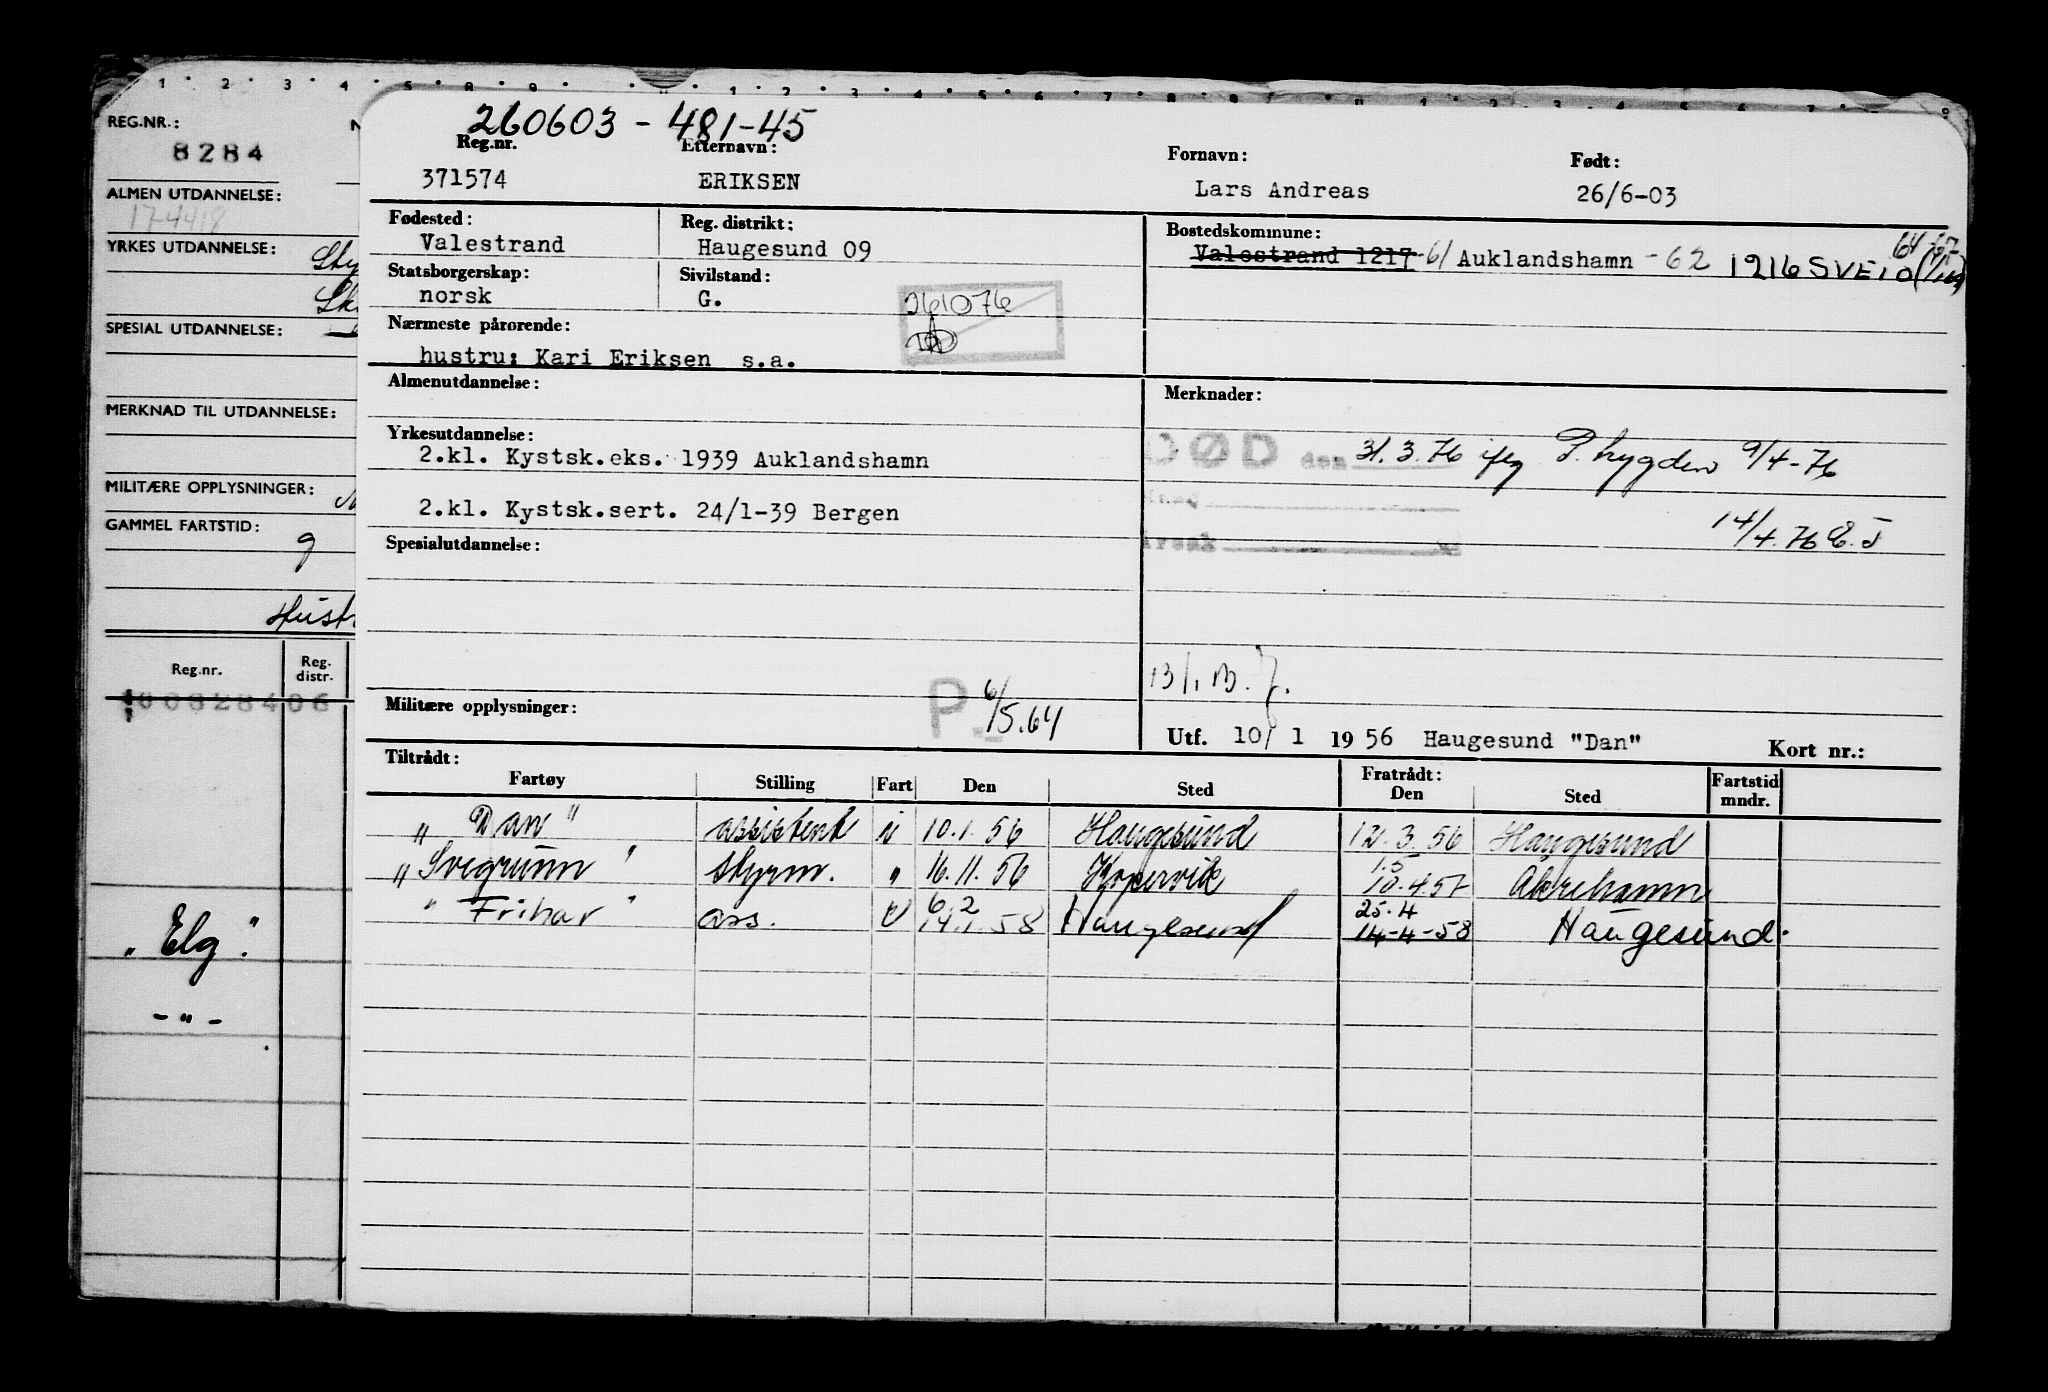 REG.NR.:
8284
ALMEN UTDANNELSE:
174418
YRKES UTDANNELSE:
SPESIAL UTDANNELSE:
MERKNAD TIL UTDANNELSE:
MILITÆRE OPPLYSNINGER:
GAMMEL FARTSTID:
g
Reg.nr. Reg. distr.
"Elg".
- " -
260603 - 481-45
Reg.nr. Etternavn: Fornavn: Født:
371574 ERIKSEN Lars Andreas 26/6-03
Fødested: Reg. distrikt: Bostedskommune:
Valestrand Haugesund 09 Valestrand 1217 -61 Auklandshamn -62 1216 SVEIO
Statsborgerskap: Sivilstand:
norsk G.
261076
Nærmeste pårørende:
hustru: Kari Eriksen s.a.
Almenutdannelse: Merknader:
Yrkesutdannelse:
2.kl. Kystsk.eks. 1939 Auklandshamn
DØD den 31.3.76 iflg P. trygden 9/4-76
2.kl. Kystsk.sert. 24/1-39 Bergen
14/4.76 E.J
Spesialutdannelse:
Militære opplysninger:
P. 6/5.64
Utf. 10/ 1 19 56 Haugesund "Dan" Kort nr.:
Tiltrådt: Fratrådt:
Fartøy Stilling Fart Den Sted Den Sted Fartstid mndr.
"Dan" assistent u 10.1.56 Haugesund 12.3.56 Haugesund
"Svegrunn" styrm. " 16.11.56 Kopervik 1.5 10.4.57 Åkrehamn
"Fribar" ass. u 6.2 14.1.58 Haugesund 25.4 14-4-58 Haugesund.